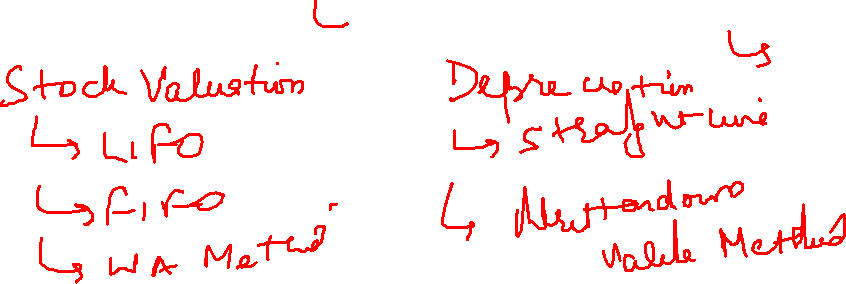 Stock Valuation
LIFO
FIFO
WA Method
Depreciation
Straight line
Writtendown
Value Method